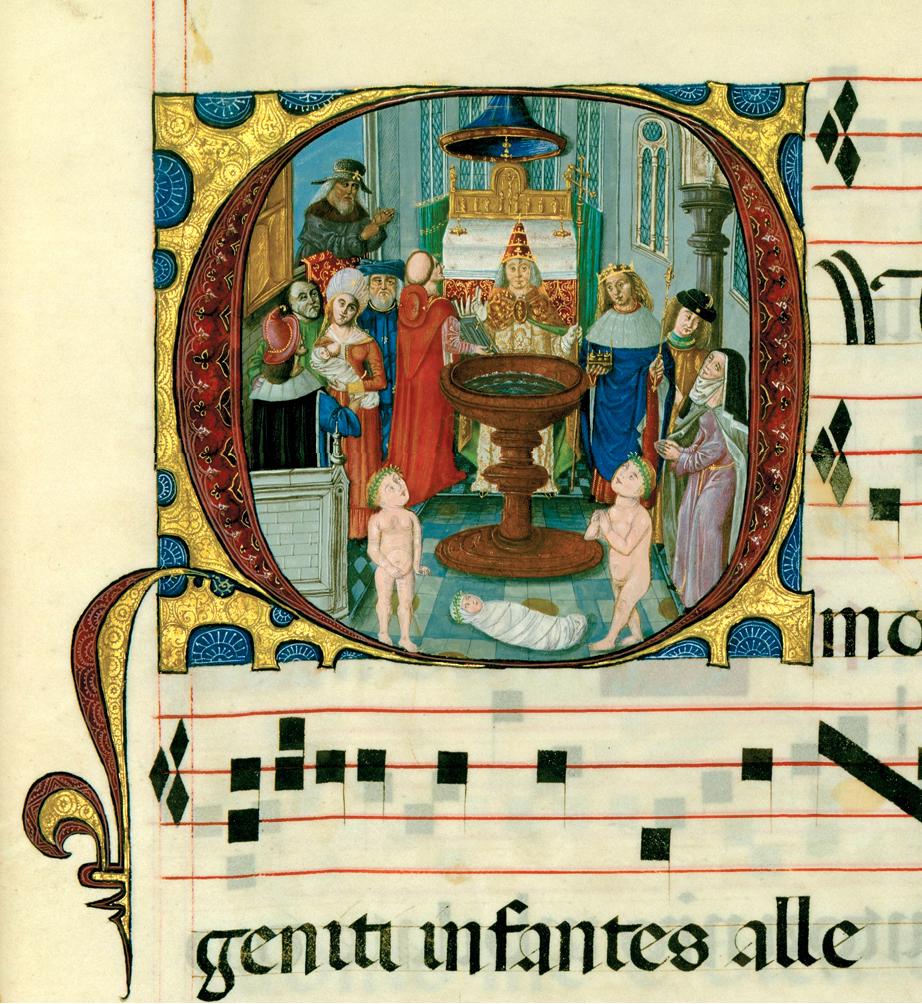 Q
mo
geniti infantes alle